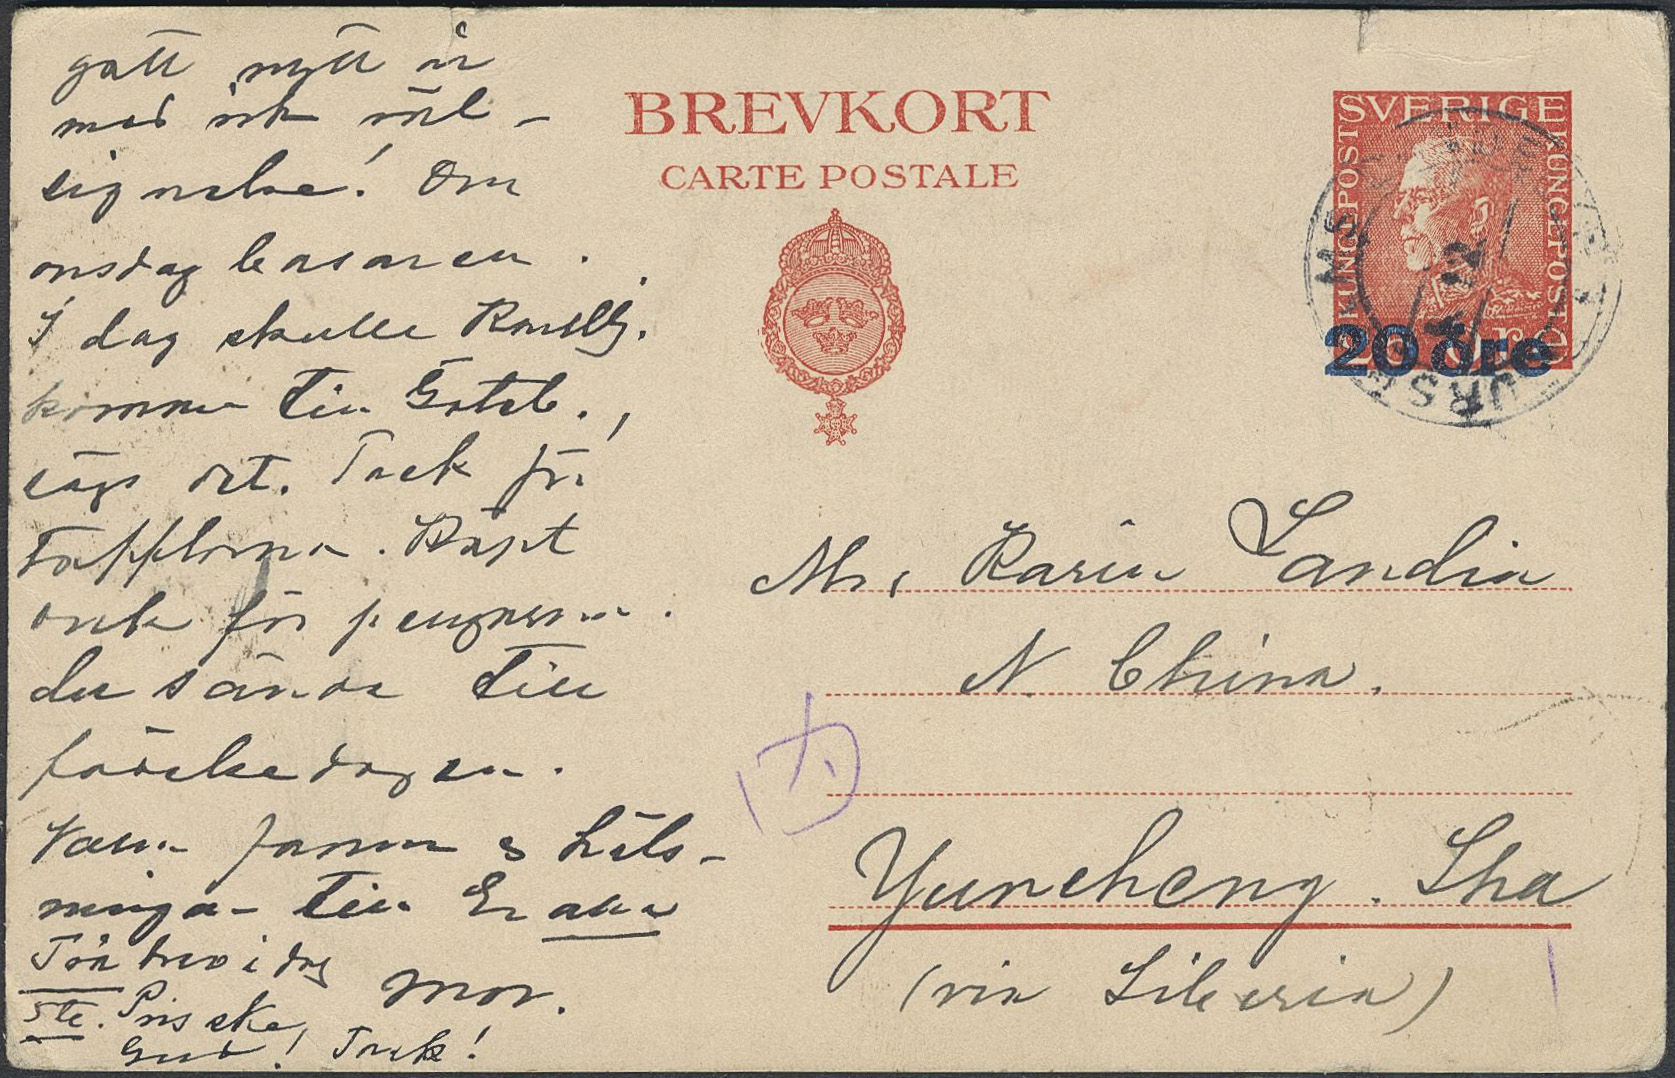 gott nytt år
med rik väl-
signelse! Om
onsdag basaren.
I dag skulle
komma till Göteb.,
sägs det. Tack för
tofflorna. Köpt
också för pengarna
du sände till
födelsedagen.
Varm famn & häls-
ningar till Er alla
Två brev i dag
Mor.
5te. Pris ske
Gud! Tack!
BREVKORT
CARTE POSTALE
SVERIGE
KUNGL POST
KUNGL POST
20 öre
Mrs Karin Landin
N. China.
Yuncheng. Sha
(via Siberia)